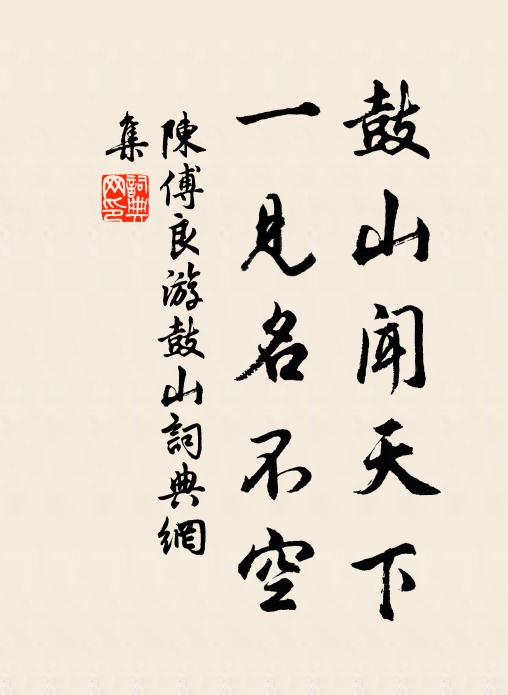 鼓山闻天下
一見名不空
陳傅良游鼓山詞典網
集
詞典網印